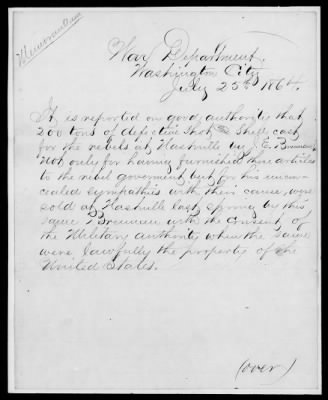 Memorandum
War Department,
Washington City
July 25th 1864.
It is reported on good authority that
200 tons of defective Shot & Shell cast
for the rebels at Nashville by
not only for having furnished these articles
to the rebel government but for his uncon-
cealed sympathies with their cause, were
sold at Nashville last spring by this
same Brennan with the consent of
the Military authority when the same
were lawfully the property of the
United States.
(over)